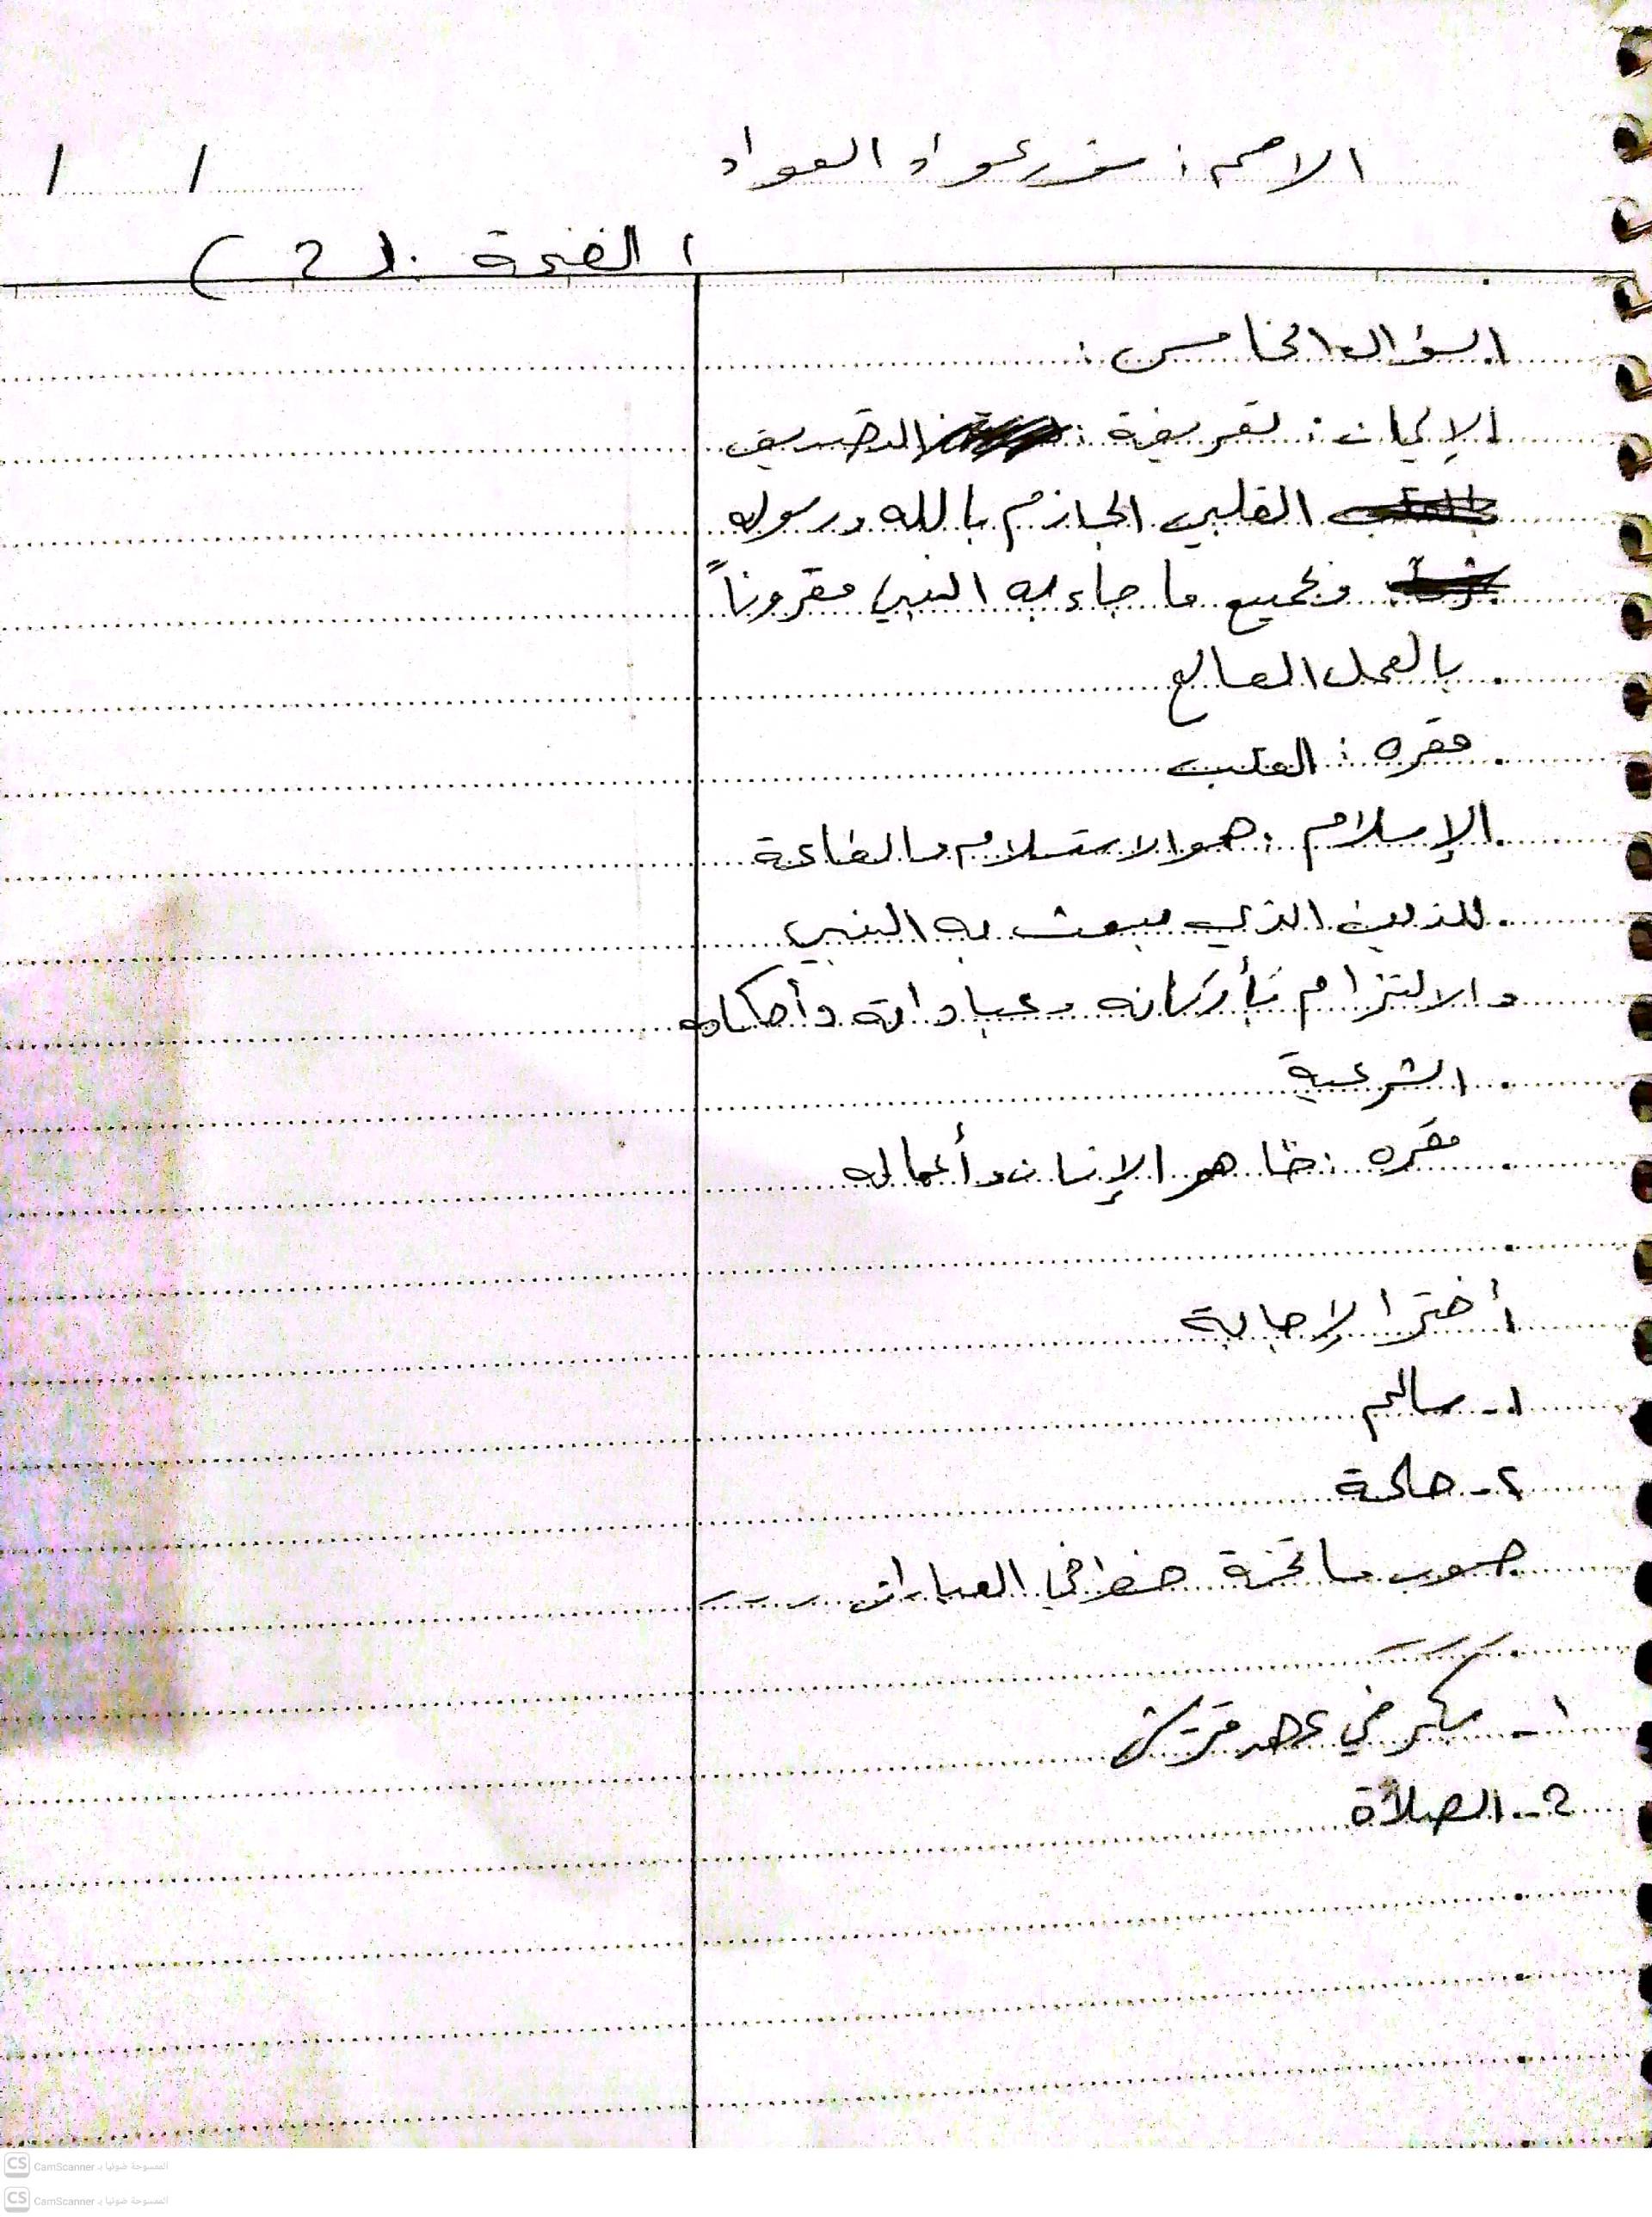 الاسم: عواد العواد
/ /
(2)
السؤال الخامس:
الإيمان: تعريفة: التصديق
القلبي الجازم بالله ورسوله
وبجميع ما جاء به النبي مقروناً
بالعمل الصالح
مقره: القلب
الإسلام: هو الاستسلام والطاعة
للدين الذي بعث به النبي
والالتزام بأركانه وعباداته وأحكامه
الشرعية
مقره: ظاهر الإنسان وأعماله
أختر الإجابة
١- سالم
٢- صالحة
صوب ما تحته خط في العبارات
١- في عهد قريش
2- الصلاة
الممسوحة ضوئيا بـ CamScanner
الممسوحة ضوئيا بـ CamScanner